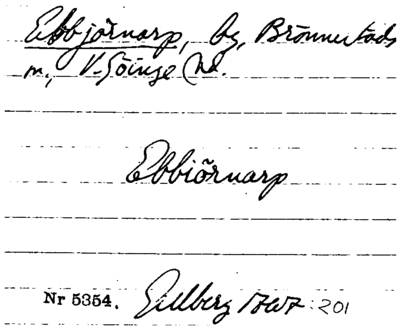 Ebbjörnarp, by, Brönnestads
sn., V. Göinge hd.
Ebbiörnarp
Nr 5354. Gillberg 1767: 201